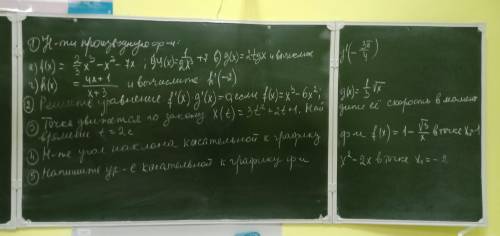 ① Н-ти производную ф-и:
а) f(x) = 2/3 x³ - x² - 7x; б) φ(x) = 1/(2x³) + 7 в) g(x) = 2tgx и вычислите g'(-3π/4)
г) h(x) = (4x+1)/(x+3) и вычислите h'(-2)
② Решите уравнение f'(x) · g'(x) = 0, если f(x) = x³ - 6x²; g(x) = 1/3 √x
③ Точка движется по закону x(t) = 3t² - 2t + 1. Найдите её скорость в момент времени t = 2c
④ Н-те угол наклона касательной к графику ф-и f(x) = 1 - √3/x в точке x₀ = 1
⑤ Напишите ур-е касательной к графику ф-и x² - 2x в точке x₀ = -2